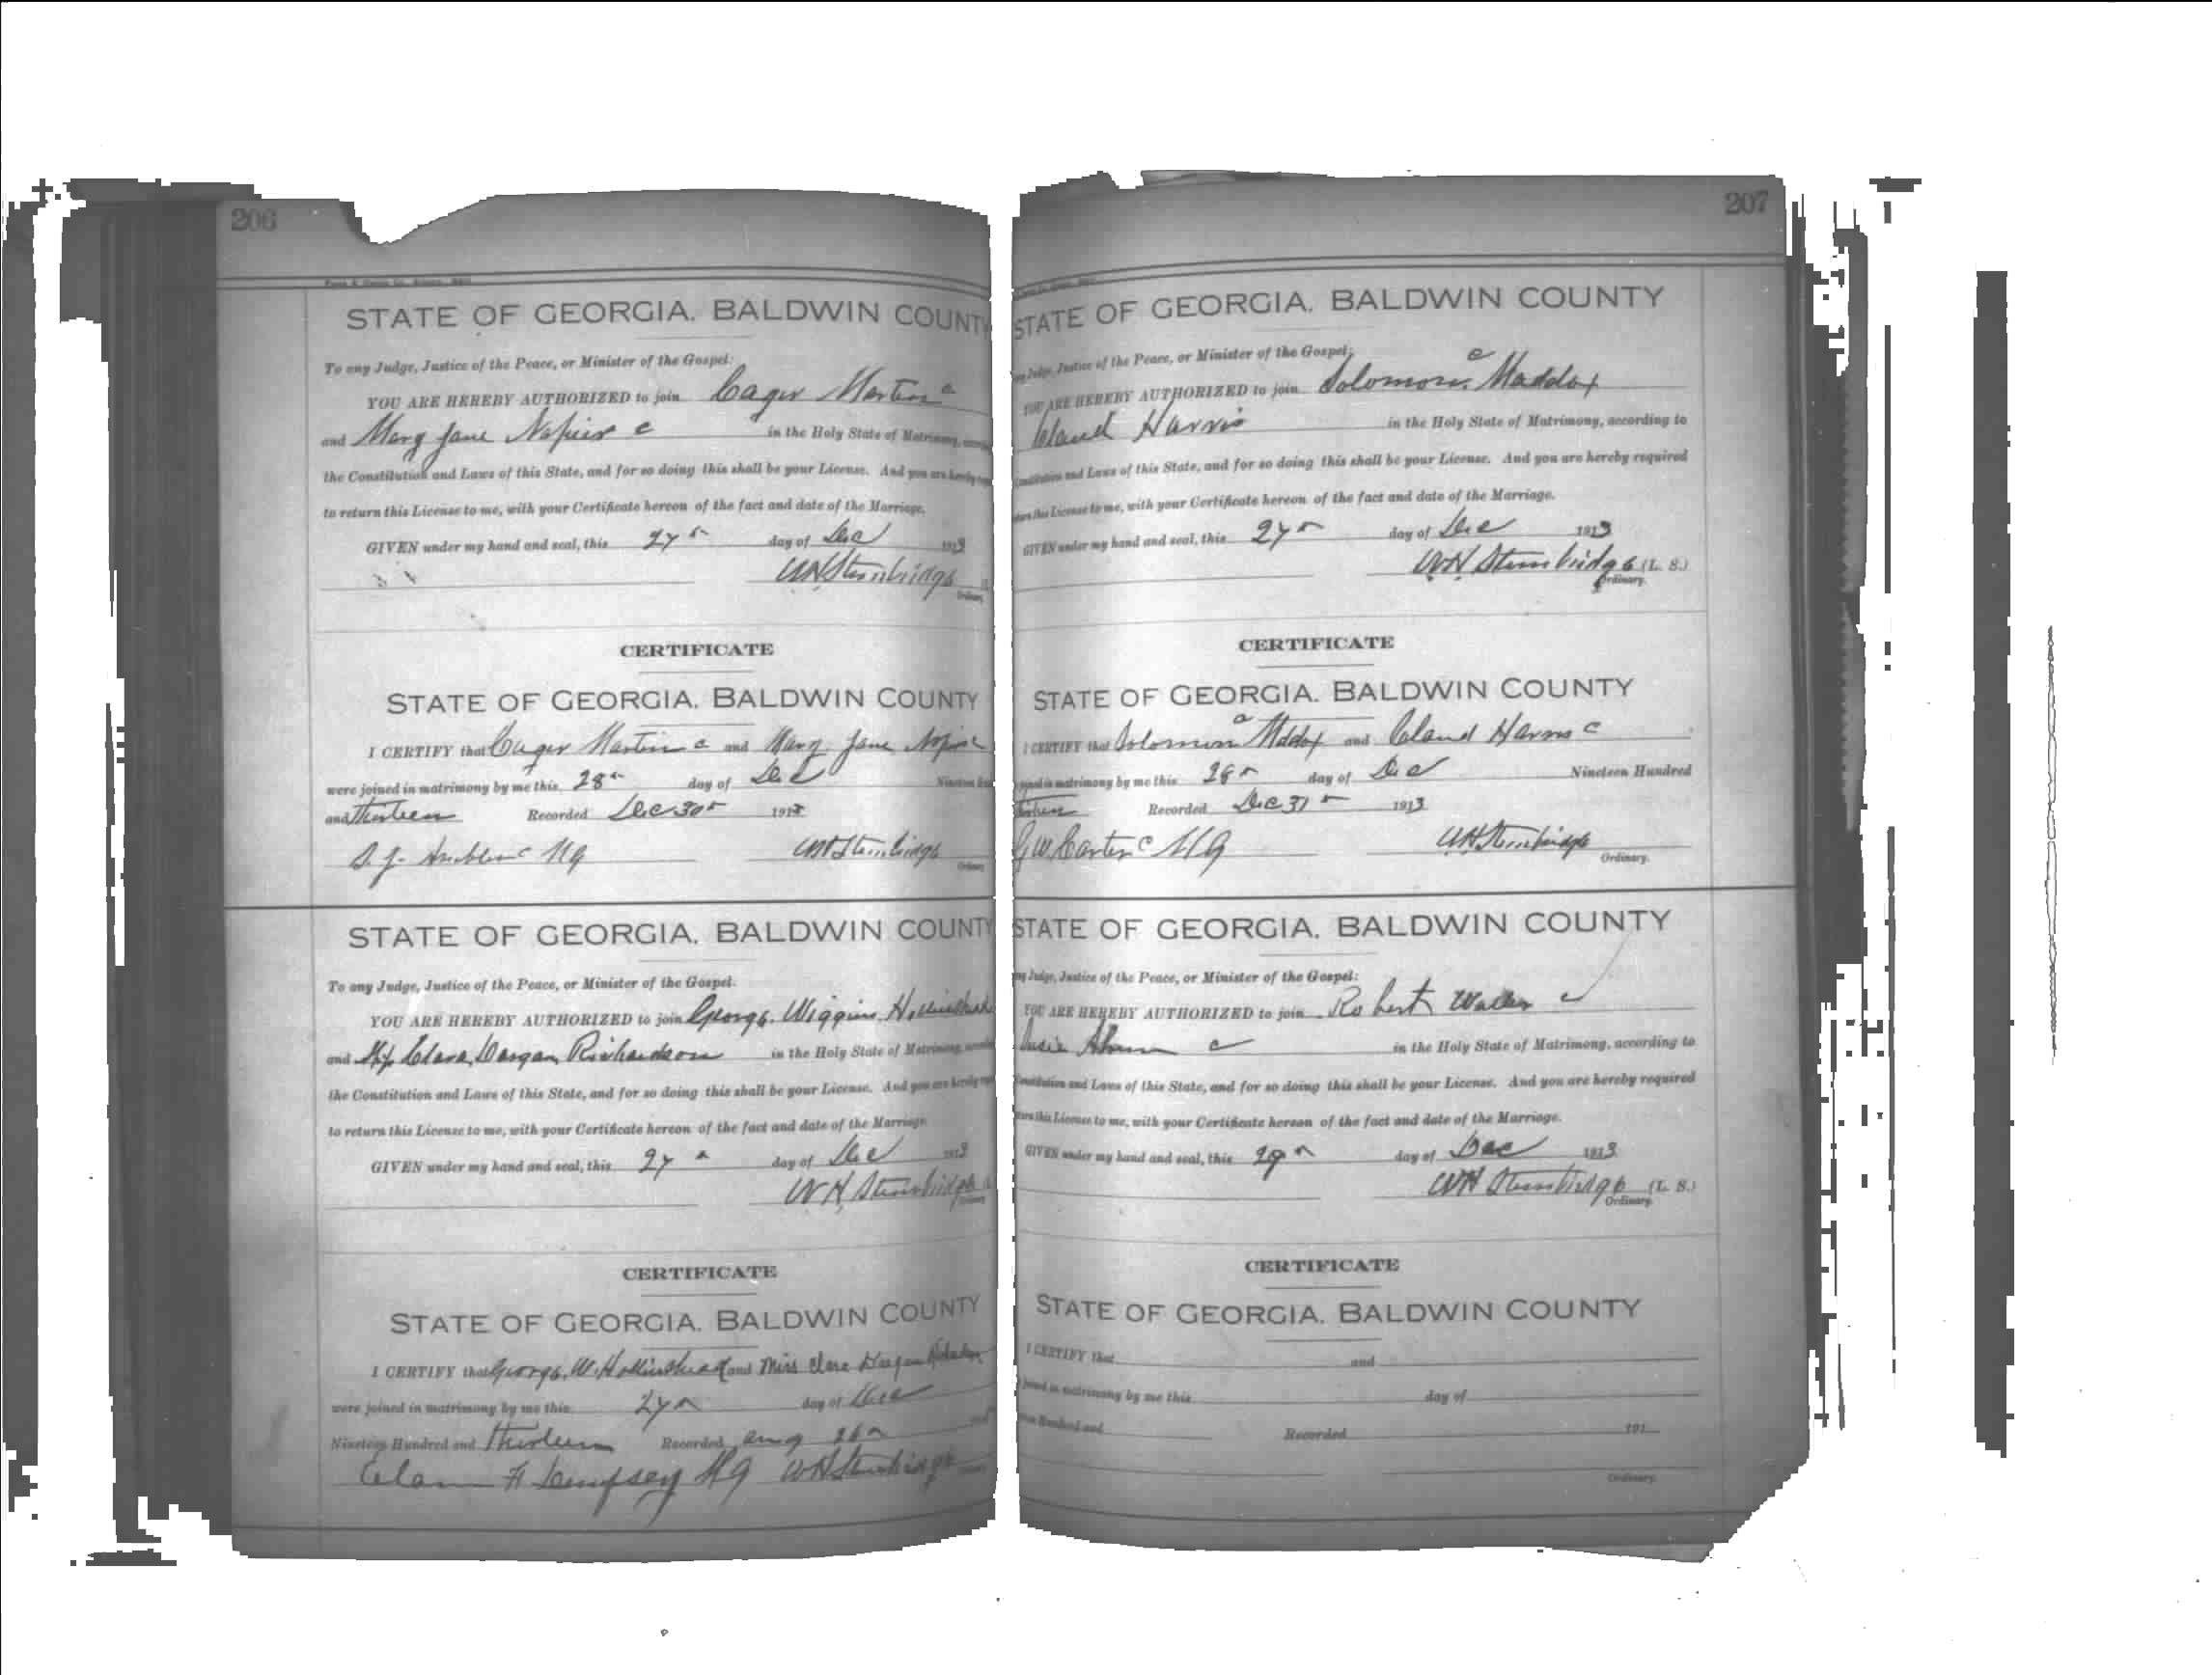 206
STATE OF GEORGIA. BALDWIN COUNTY
To any Judge, Justice of the Peace, or Minister of the Gospel:
YOU ARE HEREBY AUTHORIZED to join Cager Martin c
and Mary Jane Napier c in the Holy State of Matrimony,
the Constitution and Laws of this State, and for so doing this shall be your License. And you are hereby
to return this License to me, with your Certificate hereon of the fact and date of the Marriage.
GIVEN under my hand and seal, this 27th day of Dec 1913
WH Stembridge
Ordinary
CERTIFICATE
STATE OF GEORGIA. BALDWIN COUNTY
I CERTIFY that Cager Martin c and Mary Jane Napier
were joined in matrimony by me this 28th day of Dec Nineteen
and Thirteen Recorded Dec 30th 1913
S.J. MG WH Stembridge
Ordinary
STATE OF GEORGIA. BALDWIN COUNTY
To any Judge, Justice of the Peace, or Minister of the Gospel:
YOU ARE HEREBY AUTHORIZED to join George Wiggins Hollinshead
and Miss Clara Dargan Richardson in the Holy State of Matrimony,
the Constitution and Laws of this State, and for so doing this shall be your License. And you are hereby
to return this License to me, with your Certificate hereon of the fact and date of the Marriage.
GIVEN under my hand and seal, this 27th day of Dec 1913
WH Stembridge
Ordinary
CERTIFICATE
STATE OF GEORGIA. BALDWIN COUNTY
I CERTIFY that George W. Hollinshead and Miss Clara Dargan Richardson
were joined in matrimony by me this 27th day of Dec
Nineteen Hundred and Thirteen Recorded Aug 26th
Elam F Dempsey MG WH Stembridge
207
STATE OF GEORGIA. BALDWIN COUNTY
any Judge, Justice of the Peace, or Minister of the Gospel:
YOU ARE HEREBY AUTHORIZED to join Solomon c Maddox
Claud Harris in the Holy State of Matrimony, according to
Constitution and Laws of this State, and for so doing this shall be your License. And you are hereby required
return this License to me, with your Certificate hereon of the fact and date of the Marriage.
GIVEN under my hand and seal, this 27th day of Dec 1913
WH Stembridge (L. S.)
Ordinary.
CERTIFICATE
STATE OF GEORGIA. BALDWIN COUNTY
I CERTIFY that Solomon c Maddox and Claud Harris c
joined in matrimony by me this 28th day of Dec Nineteen Hundred
Thirteen Recorded Dec 31st 1913
G W Carter c MG WH Stembridge
Ordinary.
STATE OF GEORGIA. BALDWIN COUNTY
any Judge, Justice of the Peace, or Minister of the Gospel:
YOU ARE HEREBY AUTHORIZED to join Robert Waller c
Susie c in the Holy State of Matrimony, according to
Constitution and Laws of this State, and for so doing this shall be your License. And you are hereby required
return this License to me, with your Certificate hereon of the fact and date of the Marriage.
GIVEN under my hand and seal, this 29th day of Dec 1913
WH Stembridge (L. S.)
Ordinary.
CERTIFICATE
STATE OF GEORGIA. BALDWIN COUNTY
I CERTIFY that and
joined in matrimony by me this day of
Hundred and Recorded 191
Ordinary.